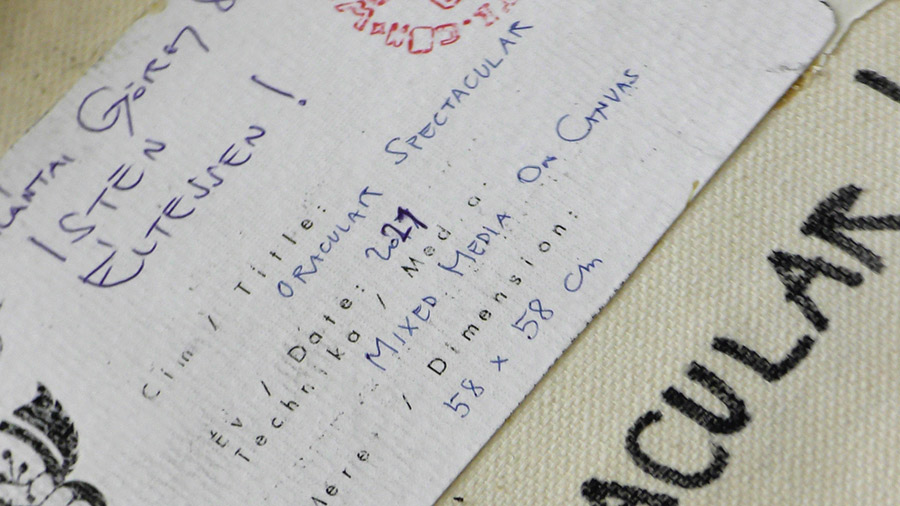 ISTEN
ÉLTESSEN!
Cím / Title:
ORACULAR SPECTACULAR
Év / Date: 2021
Technika / Media:
MIXED MEDIA ON CANVAS
Méret / Dimension:
58 x 58 cm
ACULAR